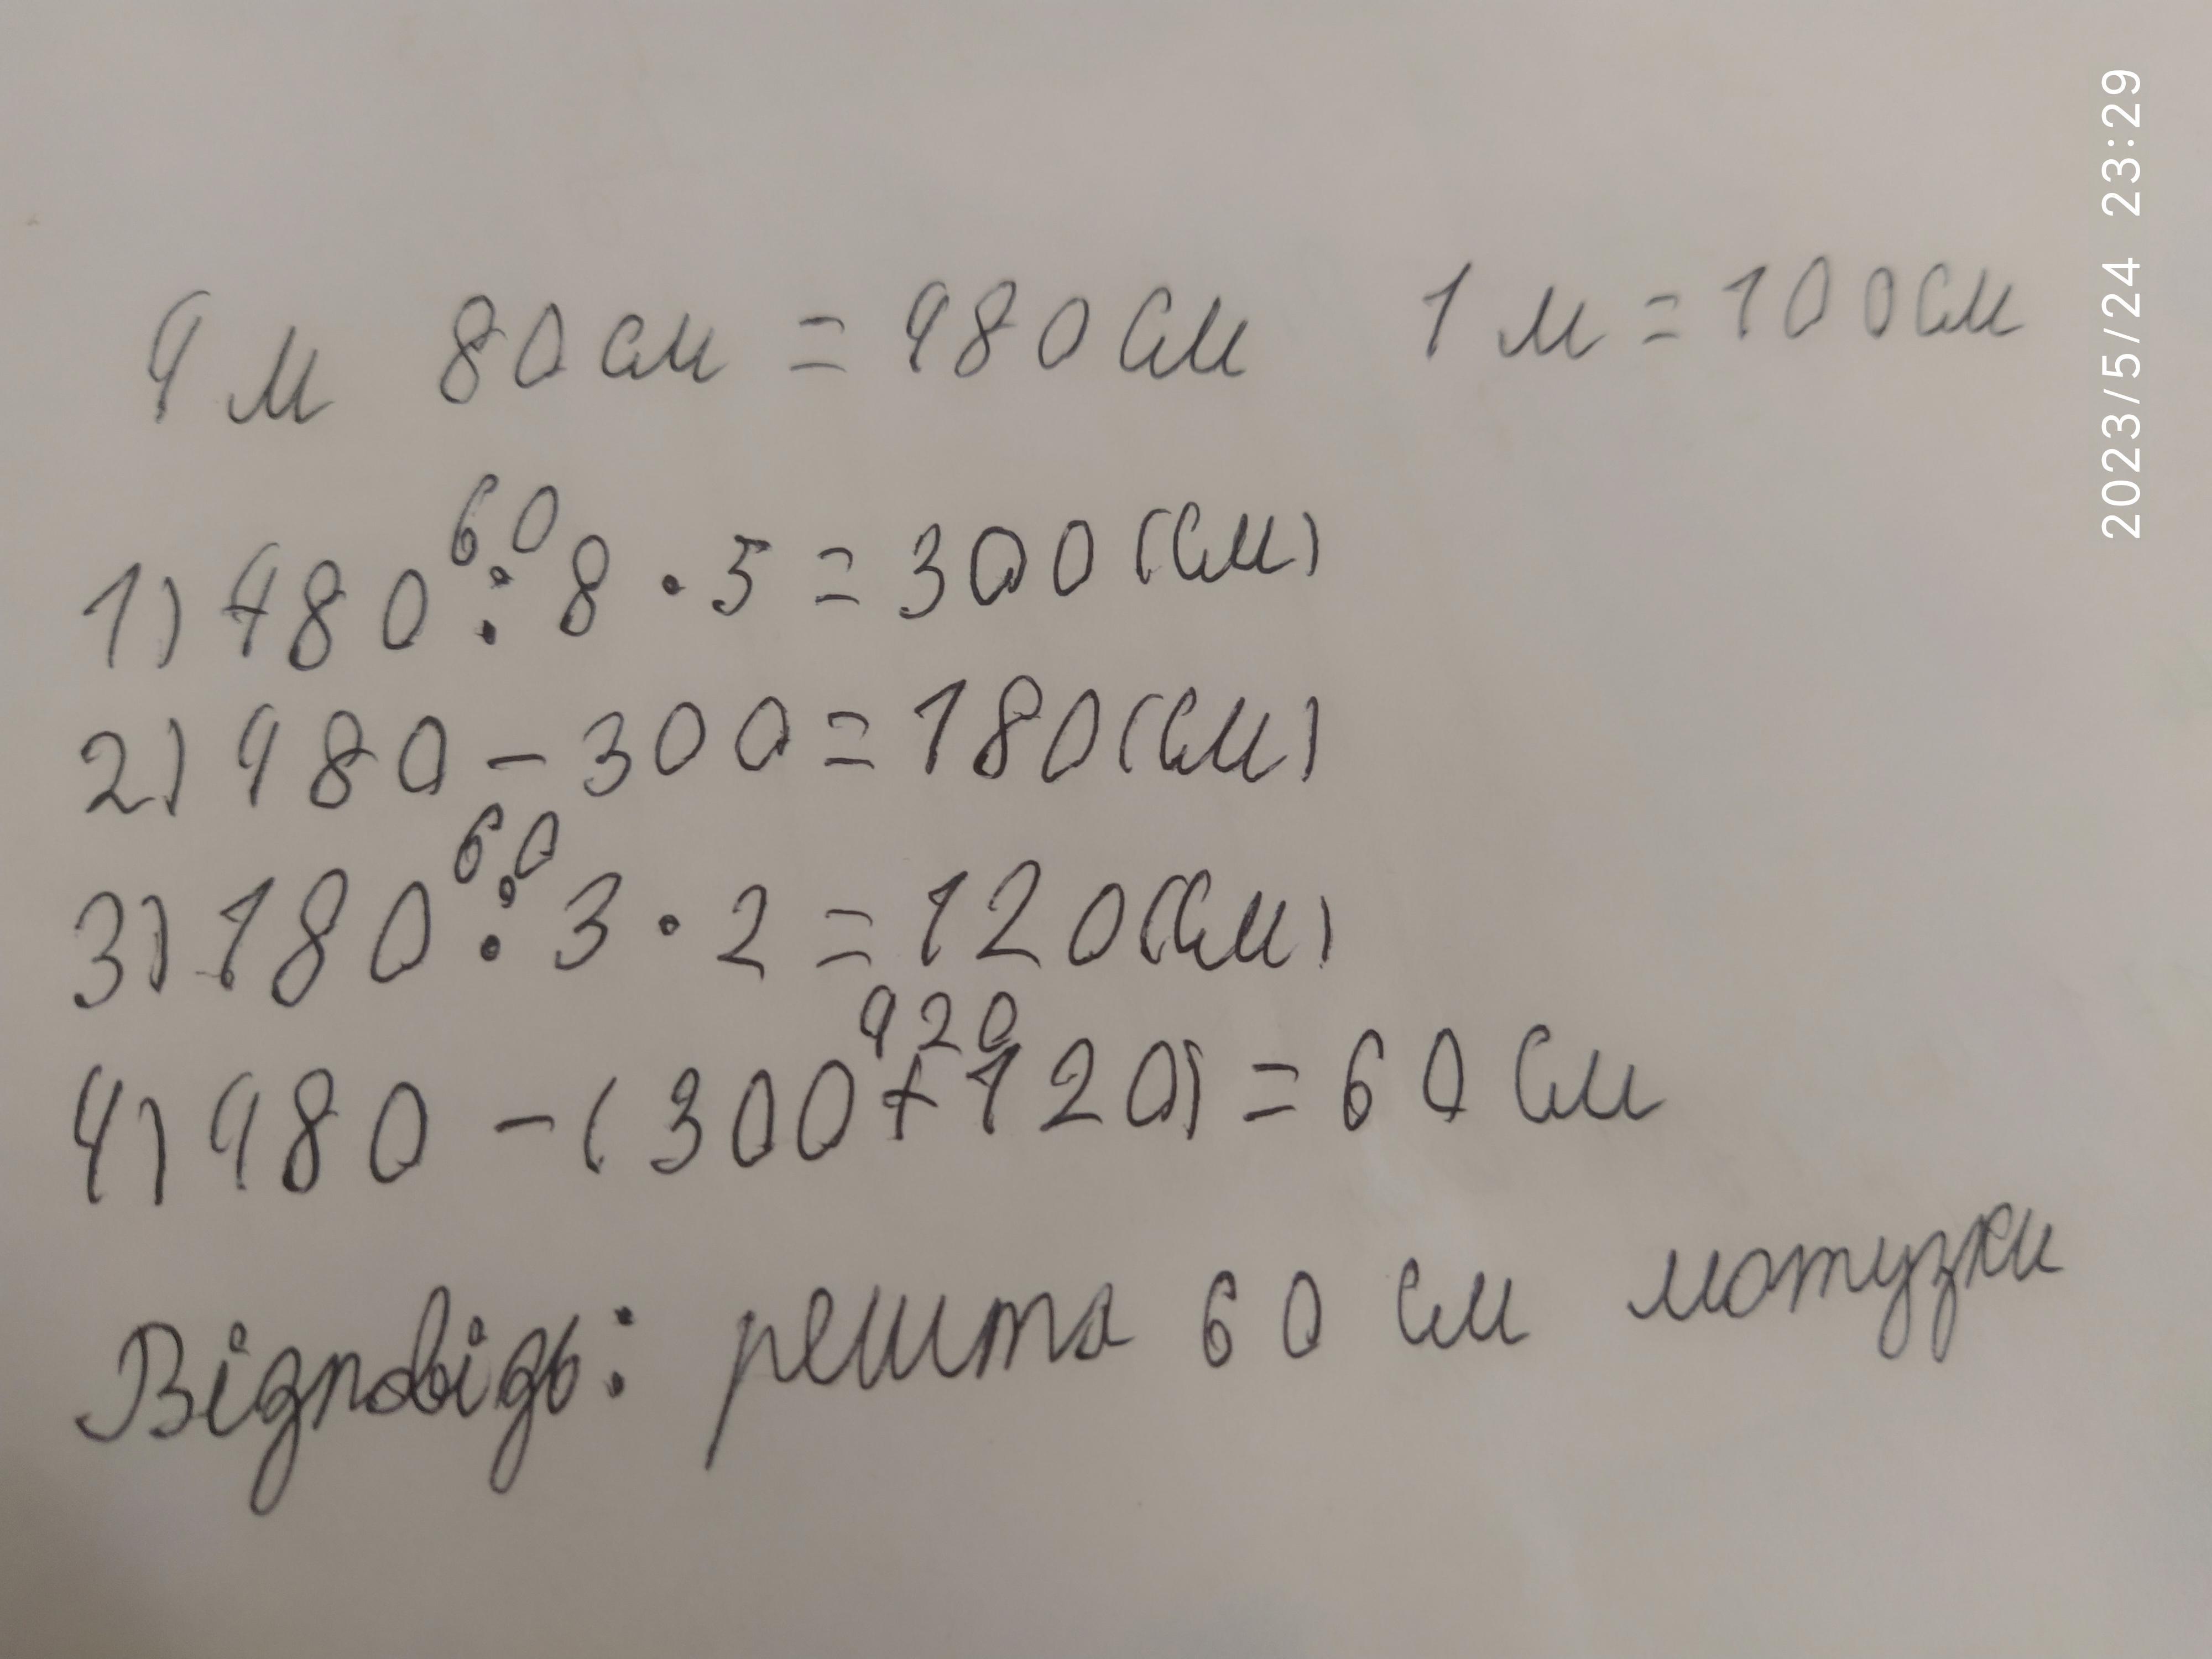 4 м 80 см = 480 см 1 м = 100 см
60
1) 480 : 8 · 5 = 300 (см)
2) 480 - 300 = 180 (см)
60
3) 180 : 3 · 2 = 120 (см)
420
4) 480 - (300 + 120) = 60 см
Відповідь: решта 60 см мотузки
2023/5/24 23:29